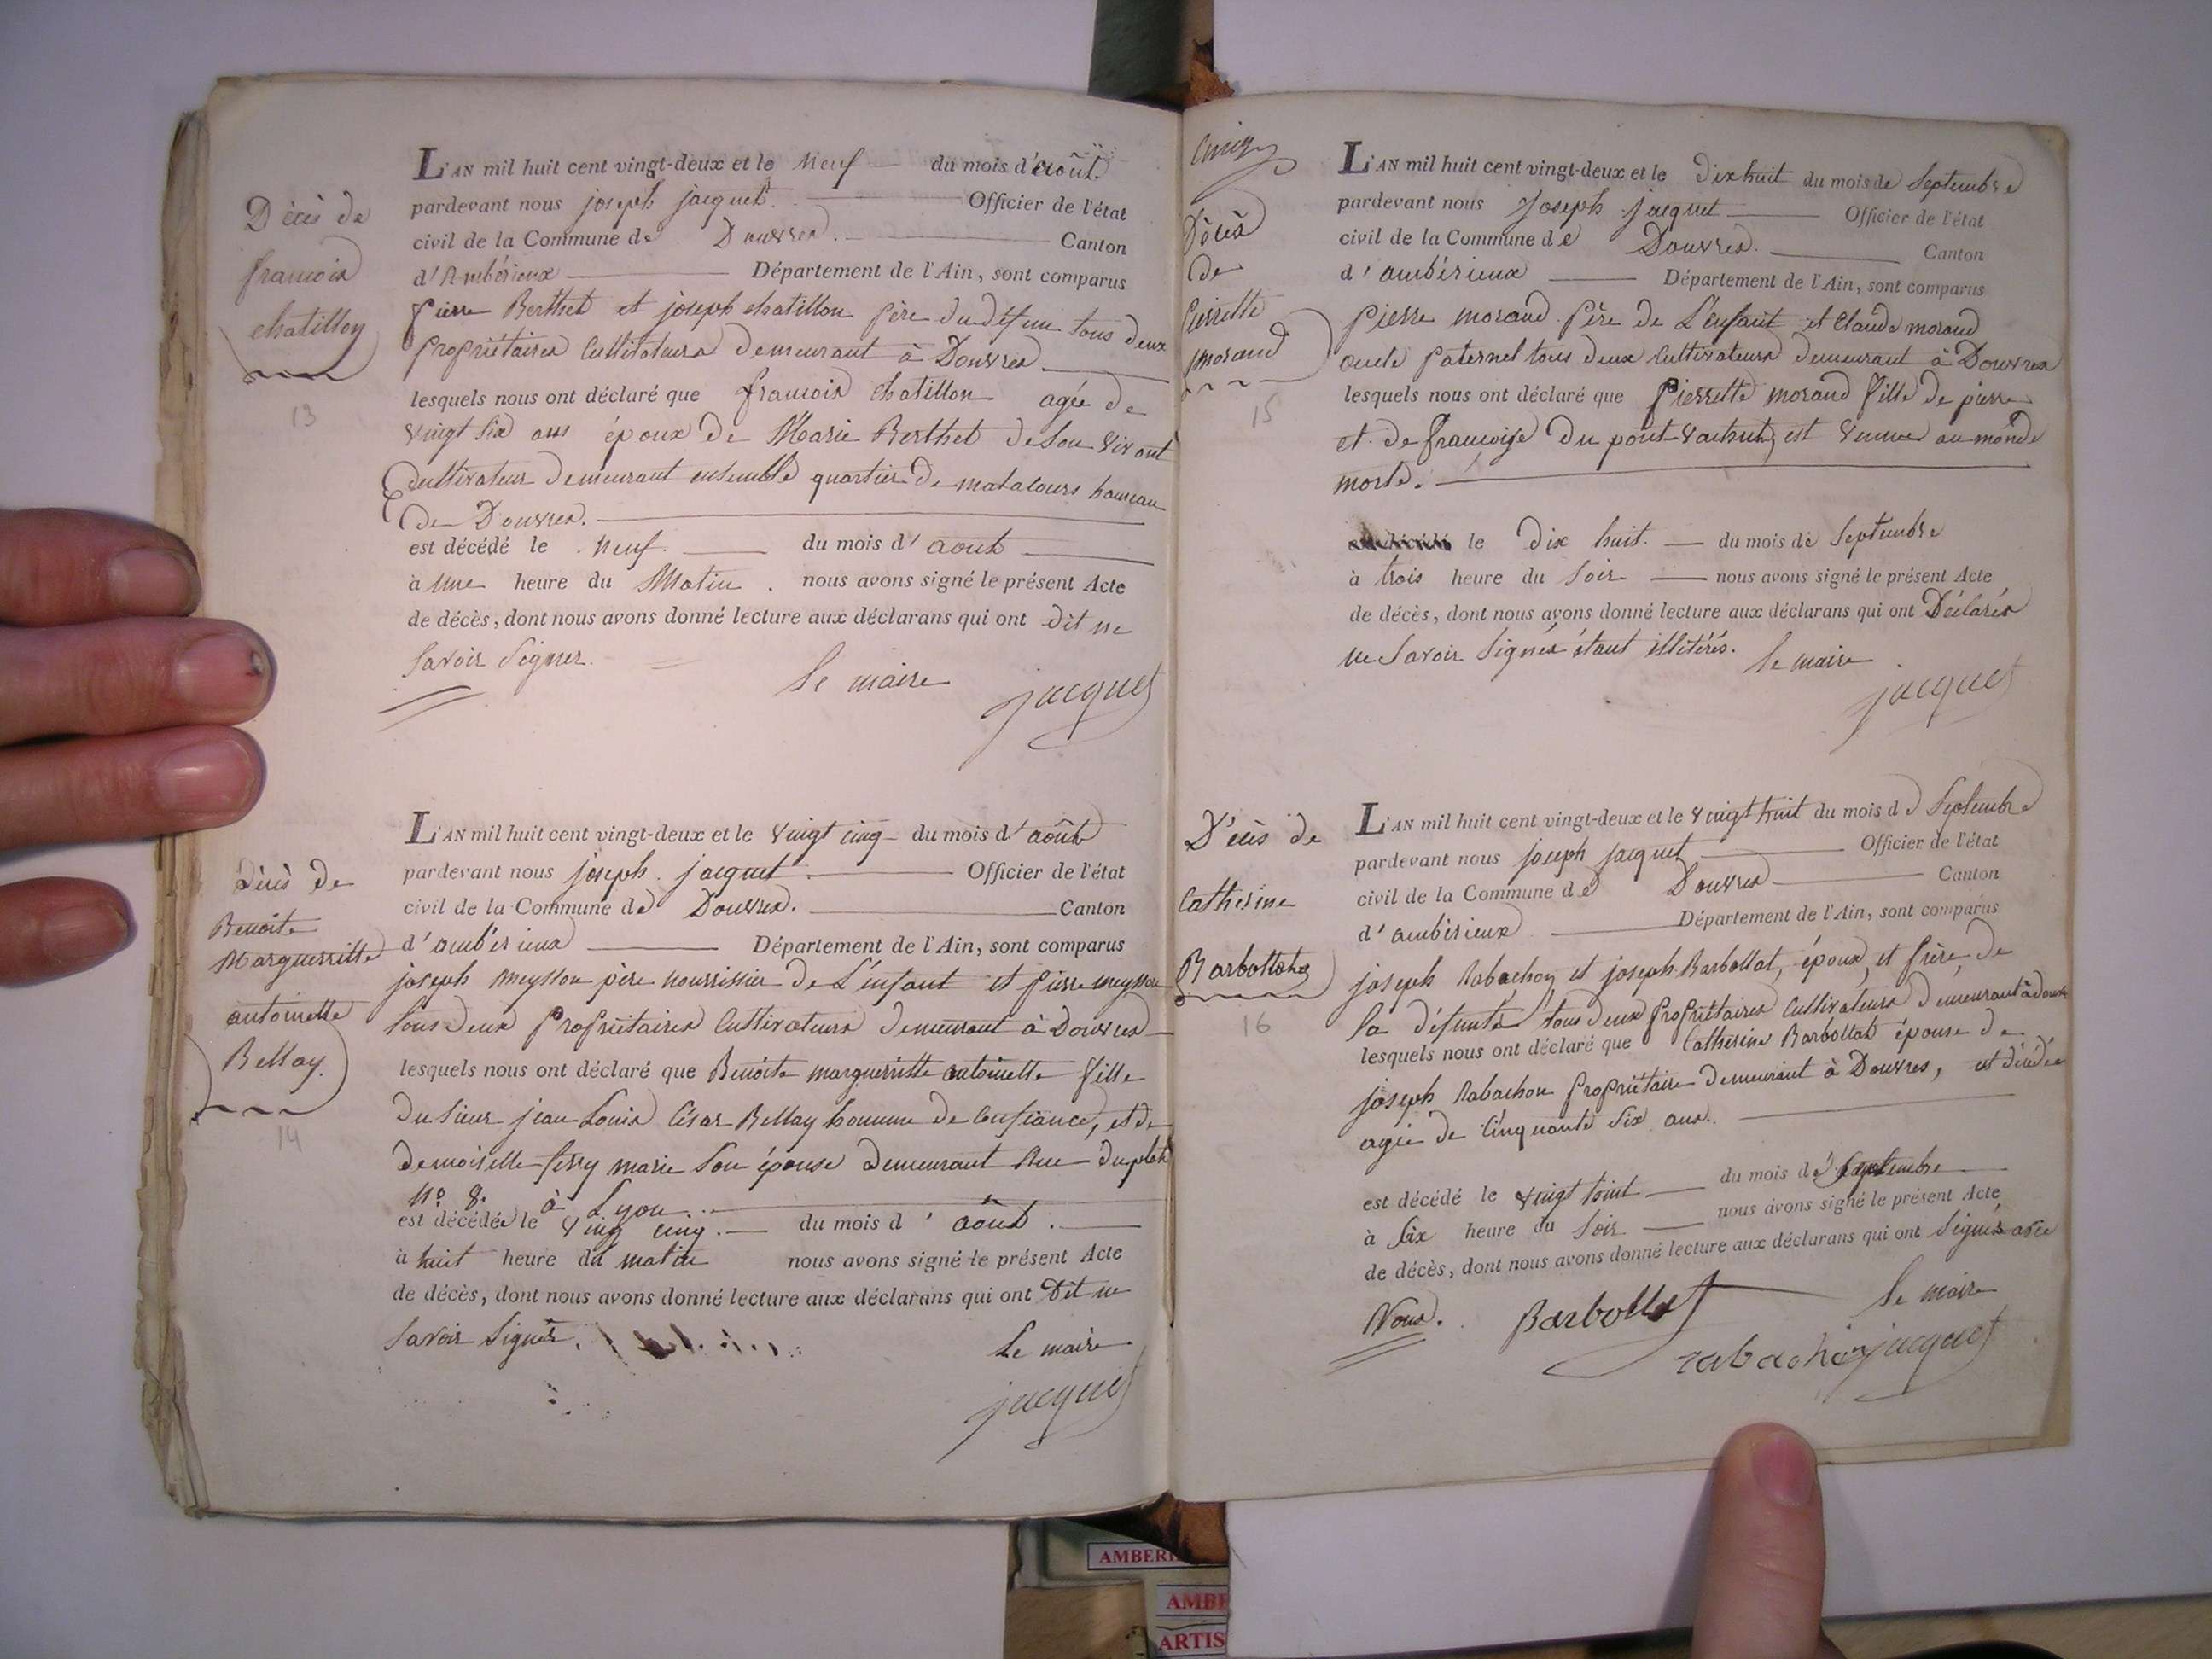 Décès de
francois
chatillon
13
L'AN mil huit cent vingt-deux et le Neuf du mois d'août
pardevant nous joseph jacquet. Officier de l'état
civil de la Commune de Douvres. Canton
d'Ambérieux Département de l'Ain, sont comparus
pierre Berthet et joseph chatillon père du défun tous deux
propriétaires Cultivateurs demeurant à Douvres
lesquels nous ont déclaré que francois chatillon agée de
vingt six ans époux de Marie Berthet de Son vivant
Cultivateur demeurant ensemble quartier de matalours hameau
de Douvres.
est décédé le Neuf. du mois d'aout
à une heure du Matin. nous avons signé le présent Acte
de décès, dont nous avons donné lecture aux déclarans qui ont dit ne
savoir signer.
le maire
jacquet
décès de
Benoite
Marguerritte
antoinette
Bellay.
14
L'AN mil huit cent vingt-deux et le vingt cinq du mois d'août
pardevant nous joseph jacquet. Officier de l'état
civil de la Commune de Douvres. Canton
d'ambérieux Département de l'Ain, sont comparus
joseph meysson père nourrissier de L'enfant et pierre meysson
tous deux propriétaires Cultivateurs demeurant à Douvres
lesquels nous ont déclaré que Benoite marguerritte antoinette fille
du sieur jean Louis César Bellay homme de Confiance, et de
demoiselle marie son épouse demeurant Rue du plat
No 8. à Lyon
est décédée le ving cinq. du mois d'août.
à huit heure du matin nous avons signé le présent Acte
de décès, dont nous avons donné lecture aux déclarans qui ont Dit ne
savoir signer.
Le maire
jacquet
cinq
Décès
de
Pierrette
morand
15
L'AN mil huit cent vingt-deux et le dix huit du mois de Septembre
pardevant nous Joseph jacquet Officier de l'état
civil de la Commune de Douvres. Canton
d'ambérieux Département de l'Ain, sont comparus
pierre morand père de L'enfant et Claude morand
oncle paternel tous deux Cultivateurs demeurant à Douvres
lesquels nous ont déclaré que pierrette morand fille de pierre
et de françoise du pont est venue au monde
morte.
le Dix huit. du mois de Septembre
à trois heure du soir nous avons signé le présent Acte
de décès, dont nous avons donné lecture aux déclarans qui ont Déclarés
ne savoir signés étant illitérés.
le maire
jacquet
Décès de
Catherine
Barbollat
16
L'AN mil huit cent vingt-deux et le vingt huit du mois de Septembre
pardevant nous joseph jacquet Officier de l'état
civil de la Commune de Douvres Canton
d'ambérieux Département de l'Ain, sont comparus
joseph Rabachon et joseph Barbollat, époux, et frère de
la défunte tous deux propriétaires Cultivateurs demeurant à douvres
lesquels nous ont déclaré que Catherine Barbollat épouse de
joseph Rabachon propriétaire demeurant à Douvres, est décédée
agée de Cinquante six ans.
est décédé le vingt huit du mois de Septembre
à six heure du soir nous avons signé le présent Acte
de décès, dont nous avons donné lecture aux déclarans qui ont signés avec
Nous.
Barbollat
le maire
rabachon jacquet
AMBERI
AMBE
ARTIS